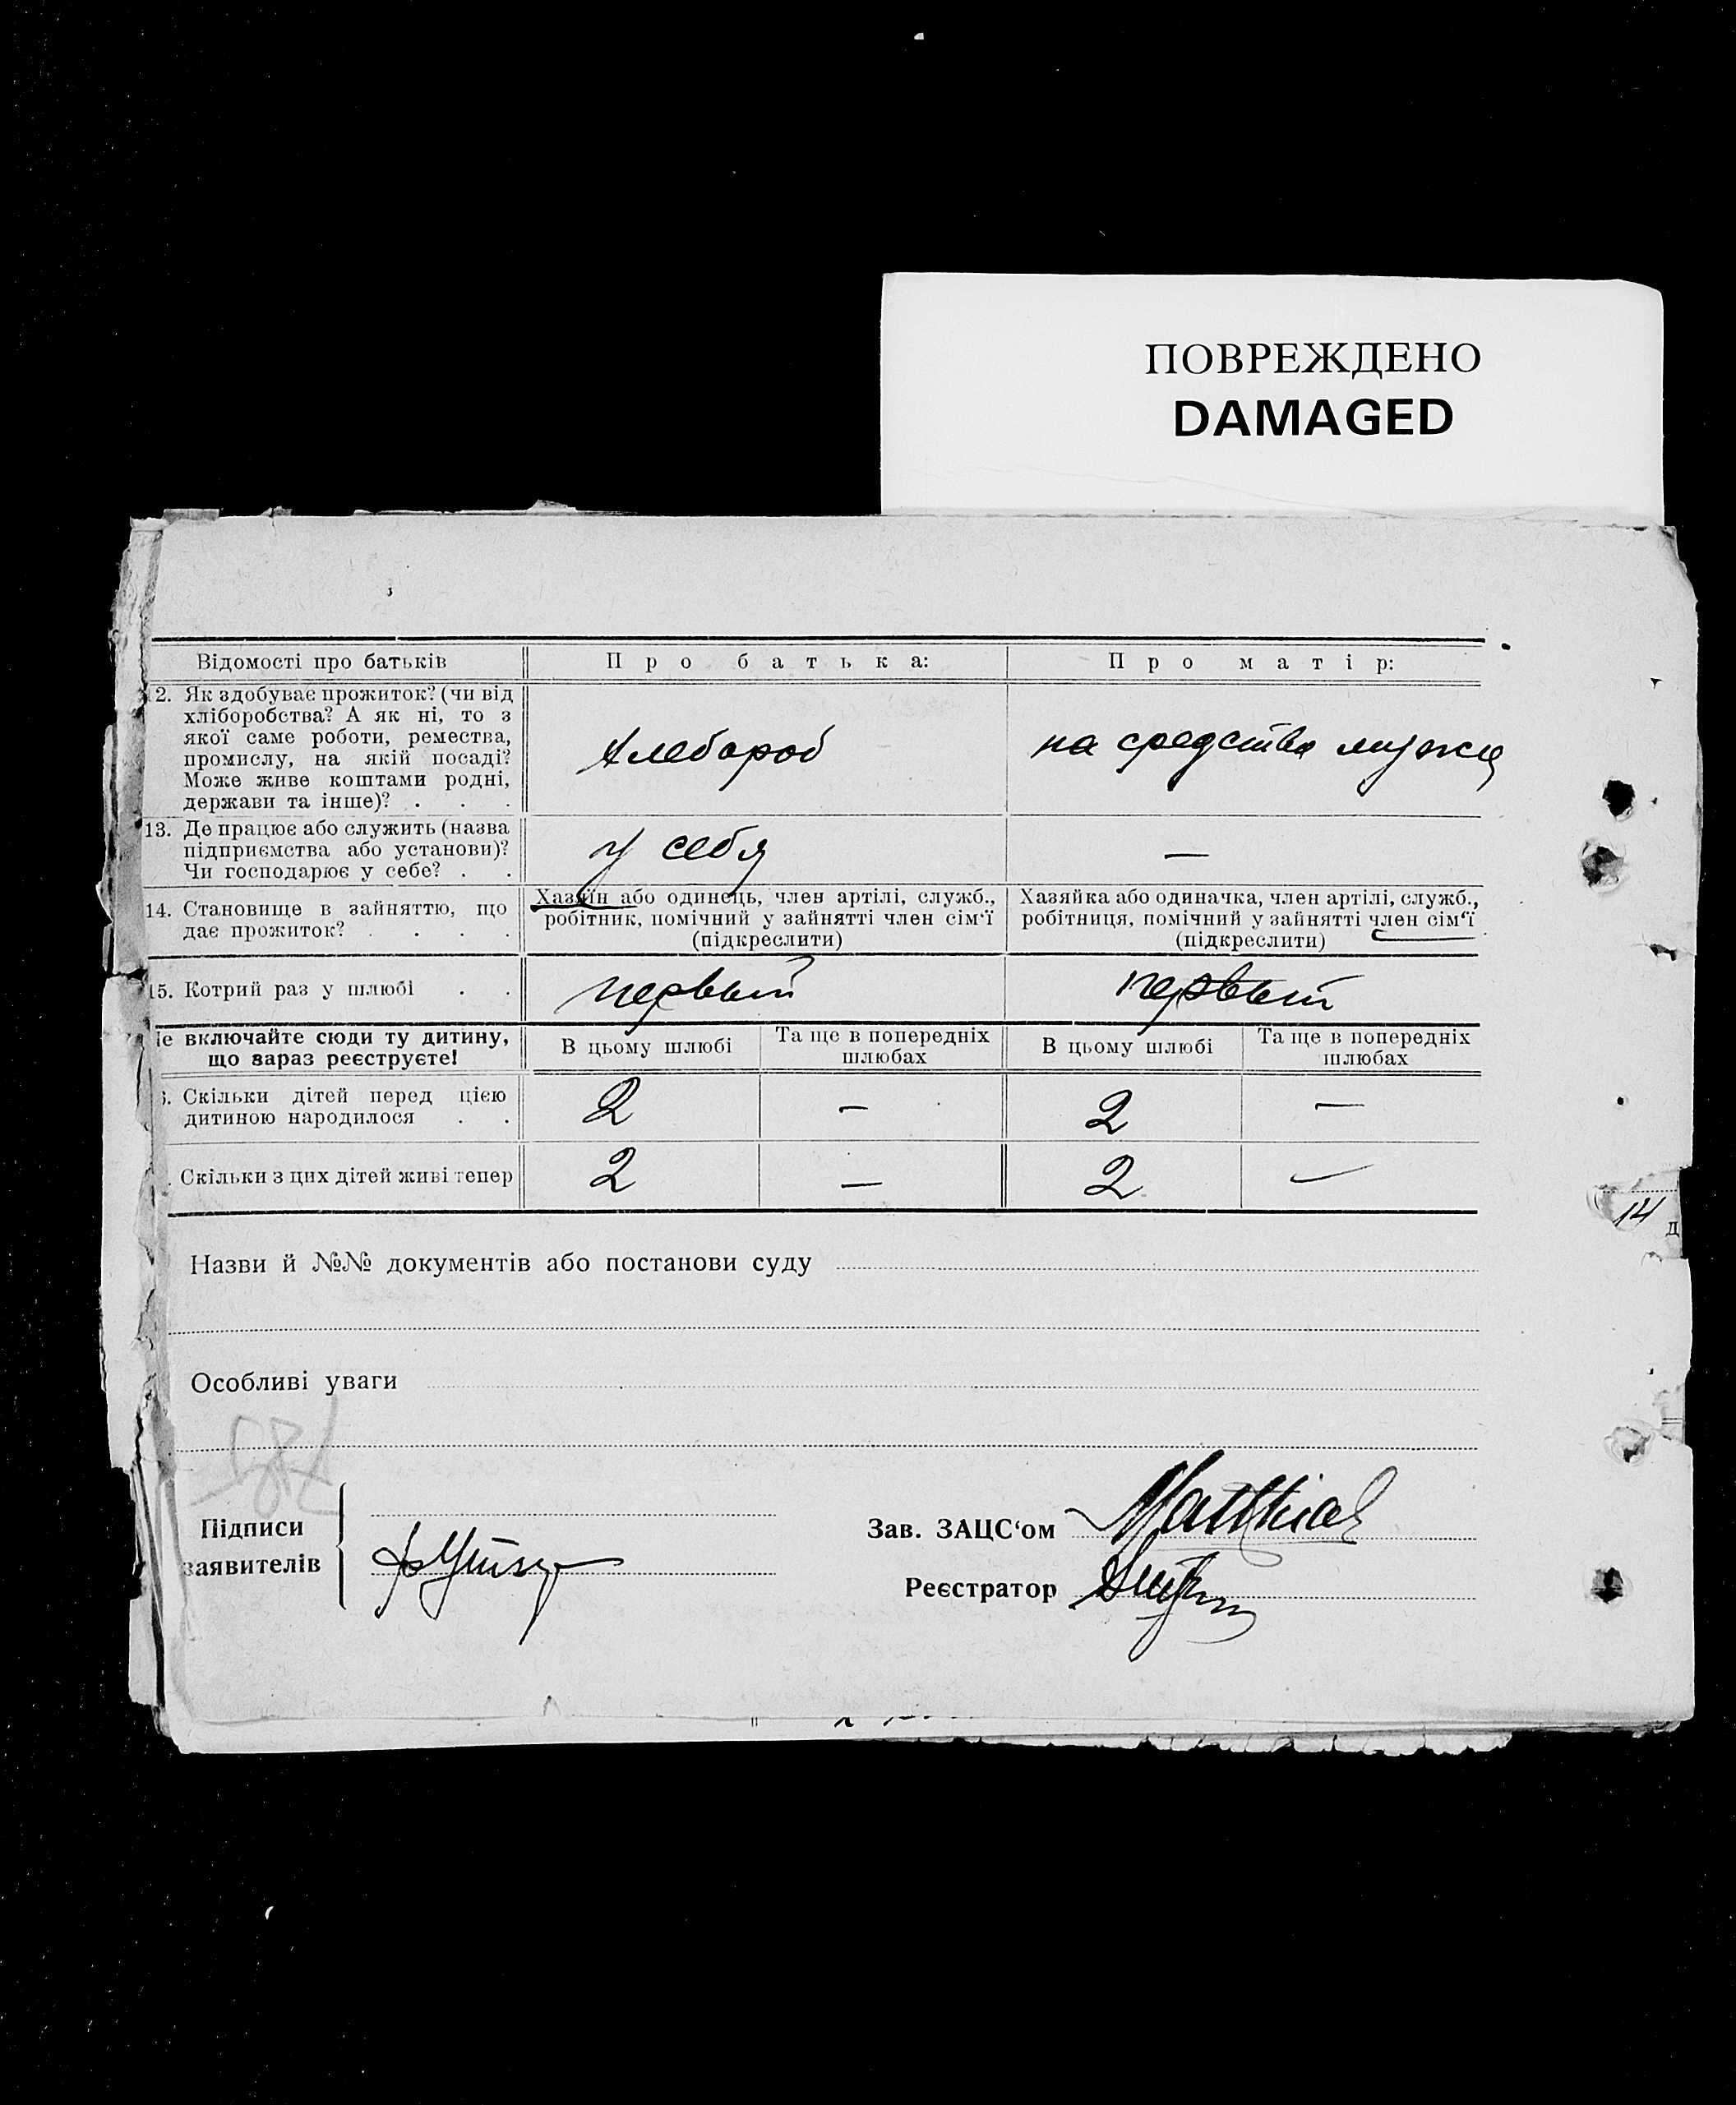 ПОВРЕЖДЕНО
DAMAGED
Відомості про батьків
Про батька:
Про матір:
2. Як здобуває прожиток? (чи від
хліборобства? А як ні, то з
якої саме роботи, ремества,
промислу, на якій посаді?
Може живе коштами родні,
держави та інше)? . . .
хлебороб
на средства мужа
13. Де працює або служить (назва
підприємства або установи)?
Чи господарює у себе? . .
у себя
—
14. Становище в зайняттю, що
дає прожиток? . . . .
Хазяїн або одинець, член артілі, служб.,
робітник, помічний у зайнятті член сім'ї
(підкреслити)
Хазяйка або одиначка, член артілі, служб.,
робітниця, помічний у зайнятті член сім'ї
(підкреслити)
15. Котрий раз у шлюбі . .
первый
первый
Не включайте сюди ту дитину,
що зараз реєструєте!
В цьому шлюбі
Та ще в попередніх
шлюбах
В цьому шлюбі
Та ще в попередніх
шлюбах
Скільки дітей перед цією
дитиною народилося . .
2
—
2
—
Скільки з цих дітей живі тепер
2
—
2
—
14
Назви й №№ документів або постанови суду
Особливі уваги
Підписи
заявителів
Зав. ЗАЦС‘ом
Matthies
Реєстратор